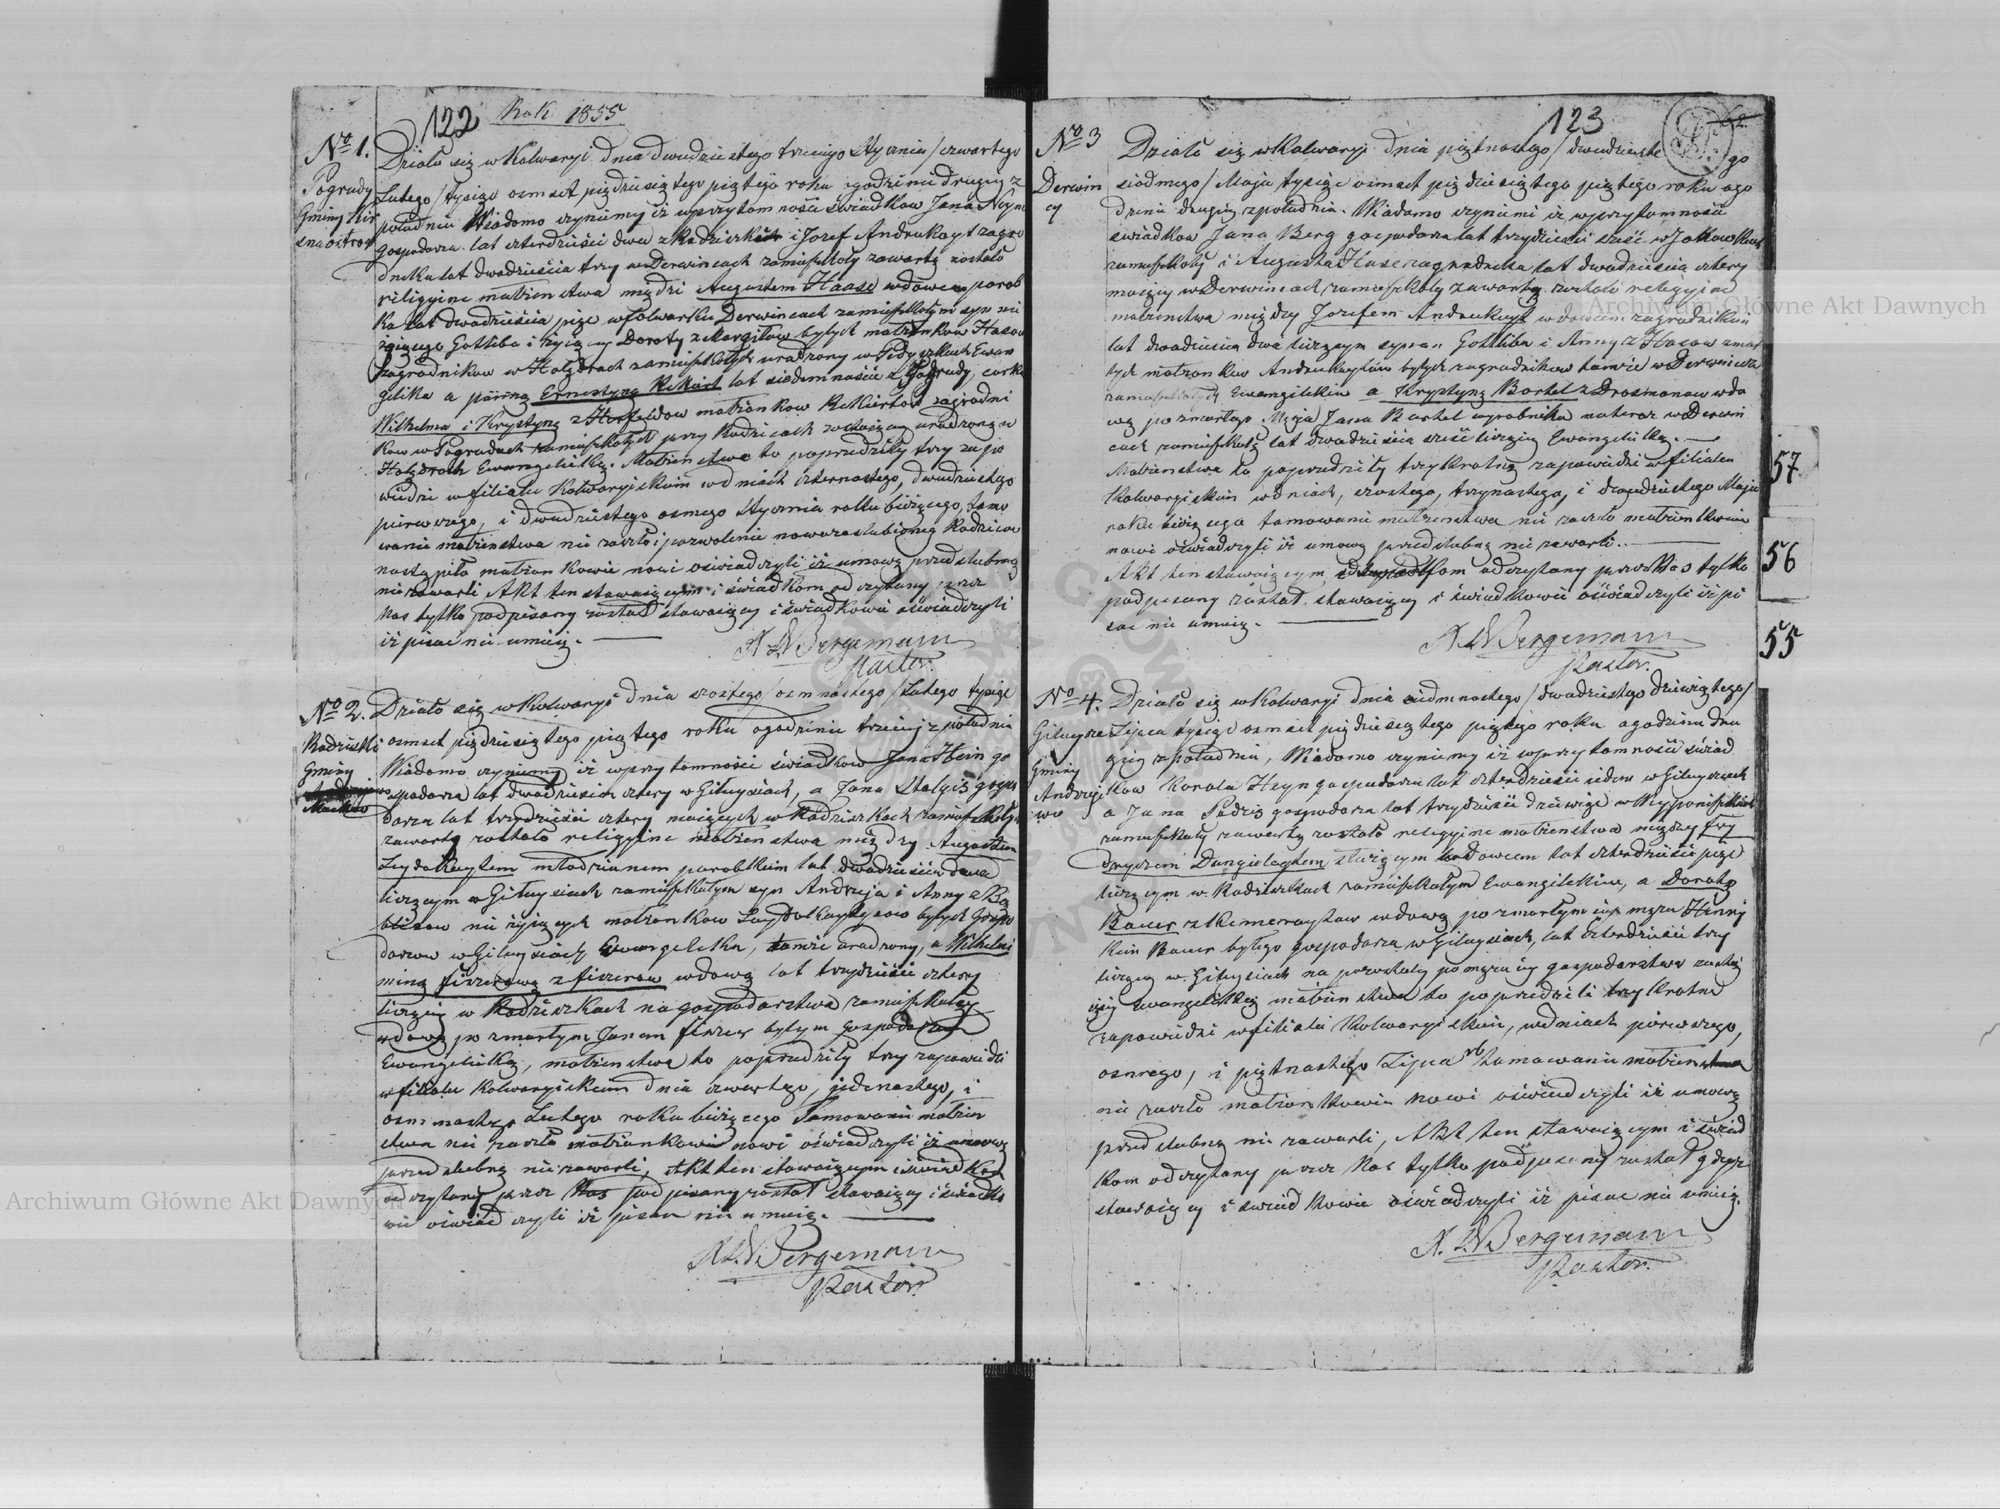 122 Rok 1855
No 1.
Pogrudy
Gminy
Działo się w Kalwaryi dnia dwudziestego trzeciego Stycznia / czwartego
Lutego / tysiąc osmset pięćdziesiątego piątego roku o godzinie drugiej z
południa Wiadomo czynimy iż w przytomności świadków Jana Heyn
gospodarza lat czterdzieści dwa z Radziszkich i Jozef Andrukayt zagro
dnika lat dwadzieścia trzy w Derwincach zamieszkały zawarte zostało
religijne małżeństwa między Augustem Haase wdowcem parob
ka lat dwadzieścia pięć w folwarku Derwincach zamieszkałym syn nie
żyjącego Gottliba i żyjącej Doroty z byłych małżonków Hasow
zagrodników w Holzdrach zamieszkałych urodzony w Ewan
gelika a panną Ernestyną Rekiert lat siedemnaście z Pogrudy, córka
Wilhelma i Krystyny z małżonków Rekiertow zagrodni
kow w Pogrudach zamieszkałych przy Rodzicach zostającą urodzoną w
Holzdrach Ewangeliczką. Małżeństwo to poprzedziły trzy zapo
wiedzi w filiale Kalwaryjskim w dniach czternastego, dwudziestego
pierwszego, i dwudziestego osmego Stycznia roku bieżącego, tamo
wanie małżeństwa nie zaszło i pozwolenie nowozaslubionej Rodzicow
nastąpiło małżonkowie nowi oświadczyli iż umowy przedslubnej
nie zawarli Akt ten stawającym i świadkom odczytany przez
Nas tylko podpisany został stawający i świadkowie oświadczyli
iż pisac nie umieją.
Bergemann
Pastor.
No 2.
Radziszki
Gminy
Działo się w Kalwaryi dnia szostego / osmnastego / Lutego tysiąc
osmset pięćdziesiątego piątego roku o godzinie trzeciej z południa
Wiadomo czynimy iż w przytomności świadków Jana Hein go
spodarza lat dwadzieścia cztery w Giłuysiach, a Jana gospo
darza lat trzydzieści cztery mających w Radziszkach zamieszkałych
zawarte zostało religijne małżeństwa między Augustem
młodzianem parobkiem lat dwadzieścia dwa
liczącym w Giłuysiach zamieszkałym syn Andrzeja i Anny z
nie żyjących małżonków byłych Gospo
darzow w Giłuysiach Ewangelika, tamże urodzony, a Wilhel
miną Fiszerową z Fiszerow wdową lat trzydzieści cztery
liczącej w Radziszkach na gospodarstwa zamieszkałej
wdową po zmarłym Janem Fiszer byłym Gospodarzem
Ewangeliczką, małżeństwa to poprzedziły trzy zapowiedzi
w filiale Kalwaryjskiem dnia czwartego, jedenastego, i
osmnastego Lutego roku bieżącego Tamowanie małżeń
stwa nie zaszło małżonkowie nowi oświadczyli iż umowy
przedslubnej nie zawarli, Akt ten stawającym i świadkom
odczytany przez Nas podpisany został stawający i świadko
wie oświadczyli iż pisac nie umieją.
Bergemann
Pastor.
123
No 3
Derwin
cy
Działo się w Kalwaryi dnia piętnastego / dwudziestego
siodmego / Maja tysiąc osmset pięćdziesiątego piątego roku o go
dzinie drugiej z południa. Wiadomo czyniemi iż w przytomności
świadkow Jana Berg gospodarza lat trzydzieści sześć w
zamieszkały i Augusta Hase zagrodnika lat dwadzieścia cztery
mający w Derwincach zamieszkały zawarte zostało religijne
małżeństwa między Jozefem Andrukayt wdowcem zagrodnikiem
lat dwadzieścia dwa liczącym synem Gottliba i Anny z Hasow zmar
łych małżonkow Andrukaytow byłych zagrodnikow tamże w Derwincach
zamieszkałych Ewangelikiem a Krystyną Bartel z Drosmanow wdo
wą po zmarłego Męża Jana Bartel wyrobnika na teraz w Derwin
cach zamieszkałą lat dwadzieścia sześć liczącą Ewangeliczką.
Małżeństwa to poprzedziły trzykrotne zapowiedzi w filialem
Kalwaryjskim w dniach, szostego, trzynastego, i dwudziestego Maja
roku bieżącego tamowanie małżeństwa nie zaszło małżonkowie
nowi oświadczyli iż umowy przedslubnej nie zawarli.
Akt ten stawającym, odczytany przez Nas tylko
podpisany został. stawający i świadkowie oświadczyli iż pi
sac nie umieją.
Bergemann
Pastor.
No 4.
Giłuysie
Gminy
Andrzeje
wo
Działo się w Kalwaryi dnia siedmnastego / dwudziestego dziewiątego /
Lipca tysiąc osmset pięćdziesiątego piątego roku o godzinie dru
giej z południa, Wiadomo czynimy iż w przytomności świad
kow Karola Heyn gospodarza lat czterdzieści siedem w Giłuysiach
a Jana gospodarza lat trzydzieści dziewięć w
zamieszkały zawarte zostało religijne małżeństwa między Fry
drychem służącym wdowcem lat czterdzieści pięć
liczącym w Radziszkach zamieszkałym Ewangelikiem, a Dorotą
Bauer z wdową po zmarłym jej mężu Henry
kiem Bauer byłego gospodarza w Giłuysiach, lat czterdzieści trzy
liczącą w Giłuysiach na pozostały po mężu jej gospodarstwa
Ewangeliczką małżeństwa to poprzedzili trzykrotne
zapowiedzi w filiale Kalwaryjskim, w dniach pierwszego,
osmego, i piętnastego Lipca rb tamowanie małżeństwa
nie zaszło małżonkowie nowi oświadczyli iż umowy
przedslubnej nie zawarli, Akt ten stawającym i świad
kom odczytany przez Nas tylko podpisany został gdyż
stawający i świadkowie oświadczyli iż pisac nie umieją.
Bergemann
Pastor.
57
56
55
Archiwum Główne Akt Dawnych
Archiwum Główne Akt Dawnych